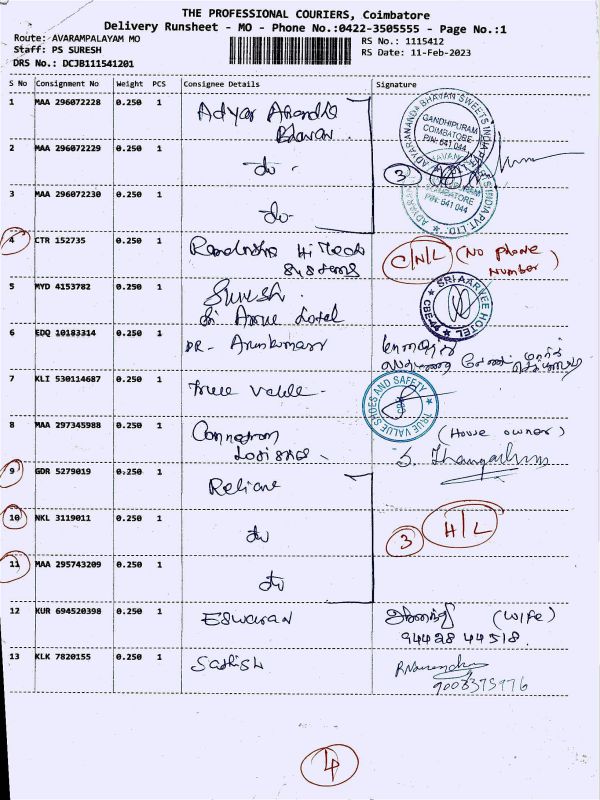 THE PROFESSIONAL COURIERS, Coimbatore
Delivery Runsheet - MO - Phone No.:0422-3505555 - Page No.:1
Route: AVARAMPALAYAM MO
RS No.: 1115412
Staff: PS SURESH
RS Date: 11-Feb-2023
DRS No.: DCJB111541201
S No Consignment No Weight PCS Consignee Details Signature
1 MAA 296072228 0.250 1 Adyar Anandha
Bhavan
ADYAR ANANDA BHAVAN SWEETS INDIA PVT. LTD.
GANDHIPURAM
COIMBATORE
PIN: 641 044
2 MAA 296072229 0.250 1 do -
3
3 MAA 296072230 0.250 1 do-
COIMBATORE
PIN: 641 044
4 CTR 152735 0.250 1 Hi Tech
Systems
C/N/L (No phone
number)
5 MYD 4153782 0.250 1 Suresh
Sri Hotel
SRI AARVEE HOTEL
CBE-44
6 EDQ 10183314 0.250 1 DR- Arunkumar
7 KLI 530114687 0.250 1 True Value -
TRUE VALUE SHOES AND SAFETY
CBE
8 MAA 297345988 0.250 1
(House owner)
S.
9 GDR 5279019 0.250 1 Reliance
10 NKL 3119011 0.250 1 do
3 H/L
11 MAA 295743209 0.250 1 do
12 KUR 694520398 0.250 1 Eswaran
(wife)
94428 44518
13 KLK 7820155 0.250 1 Sathish
9003375976